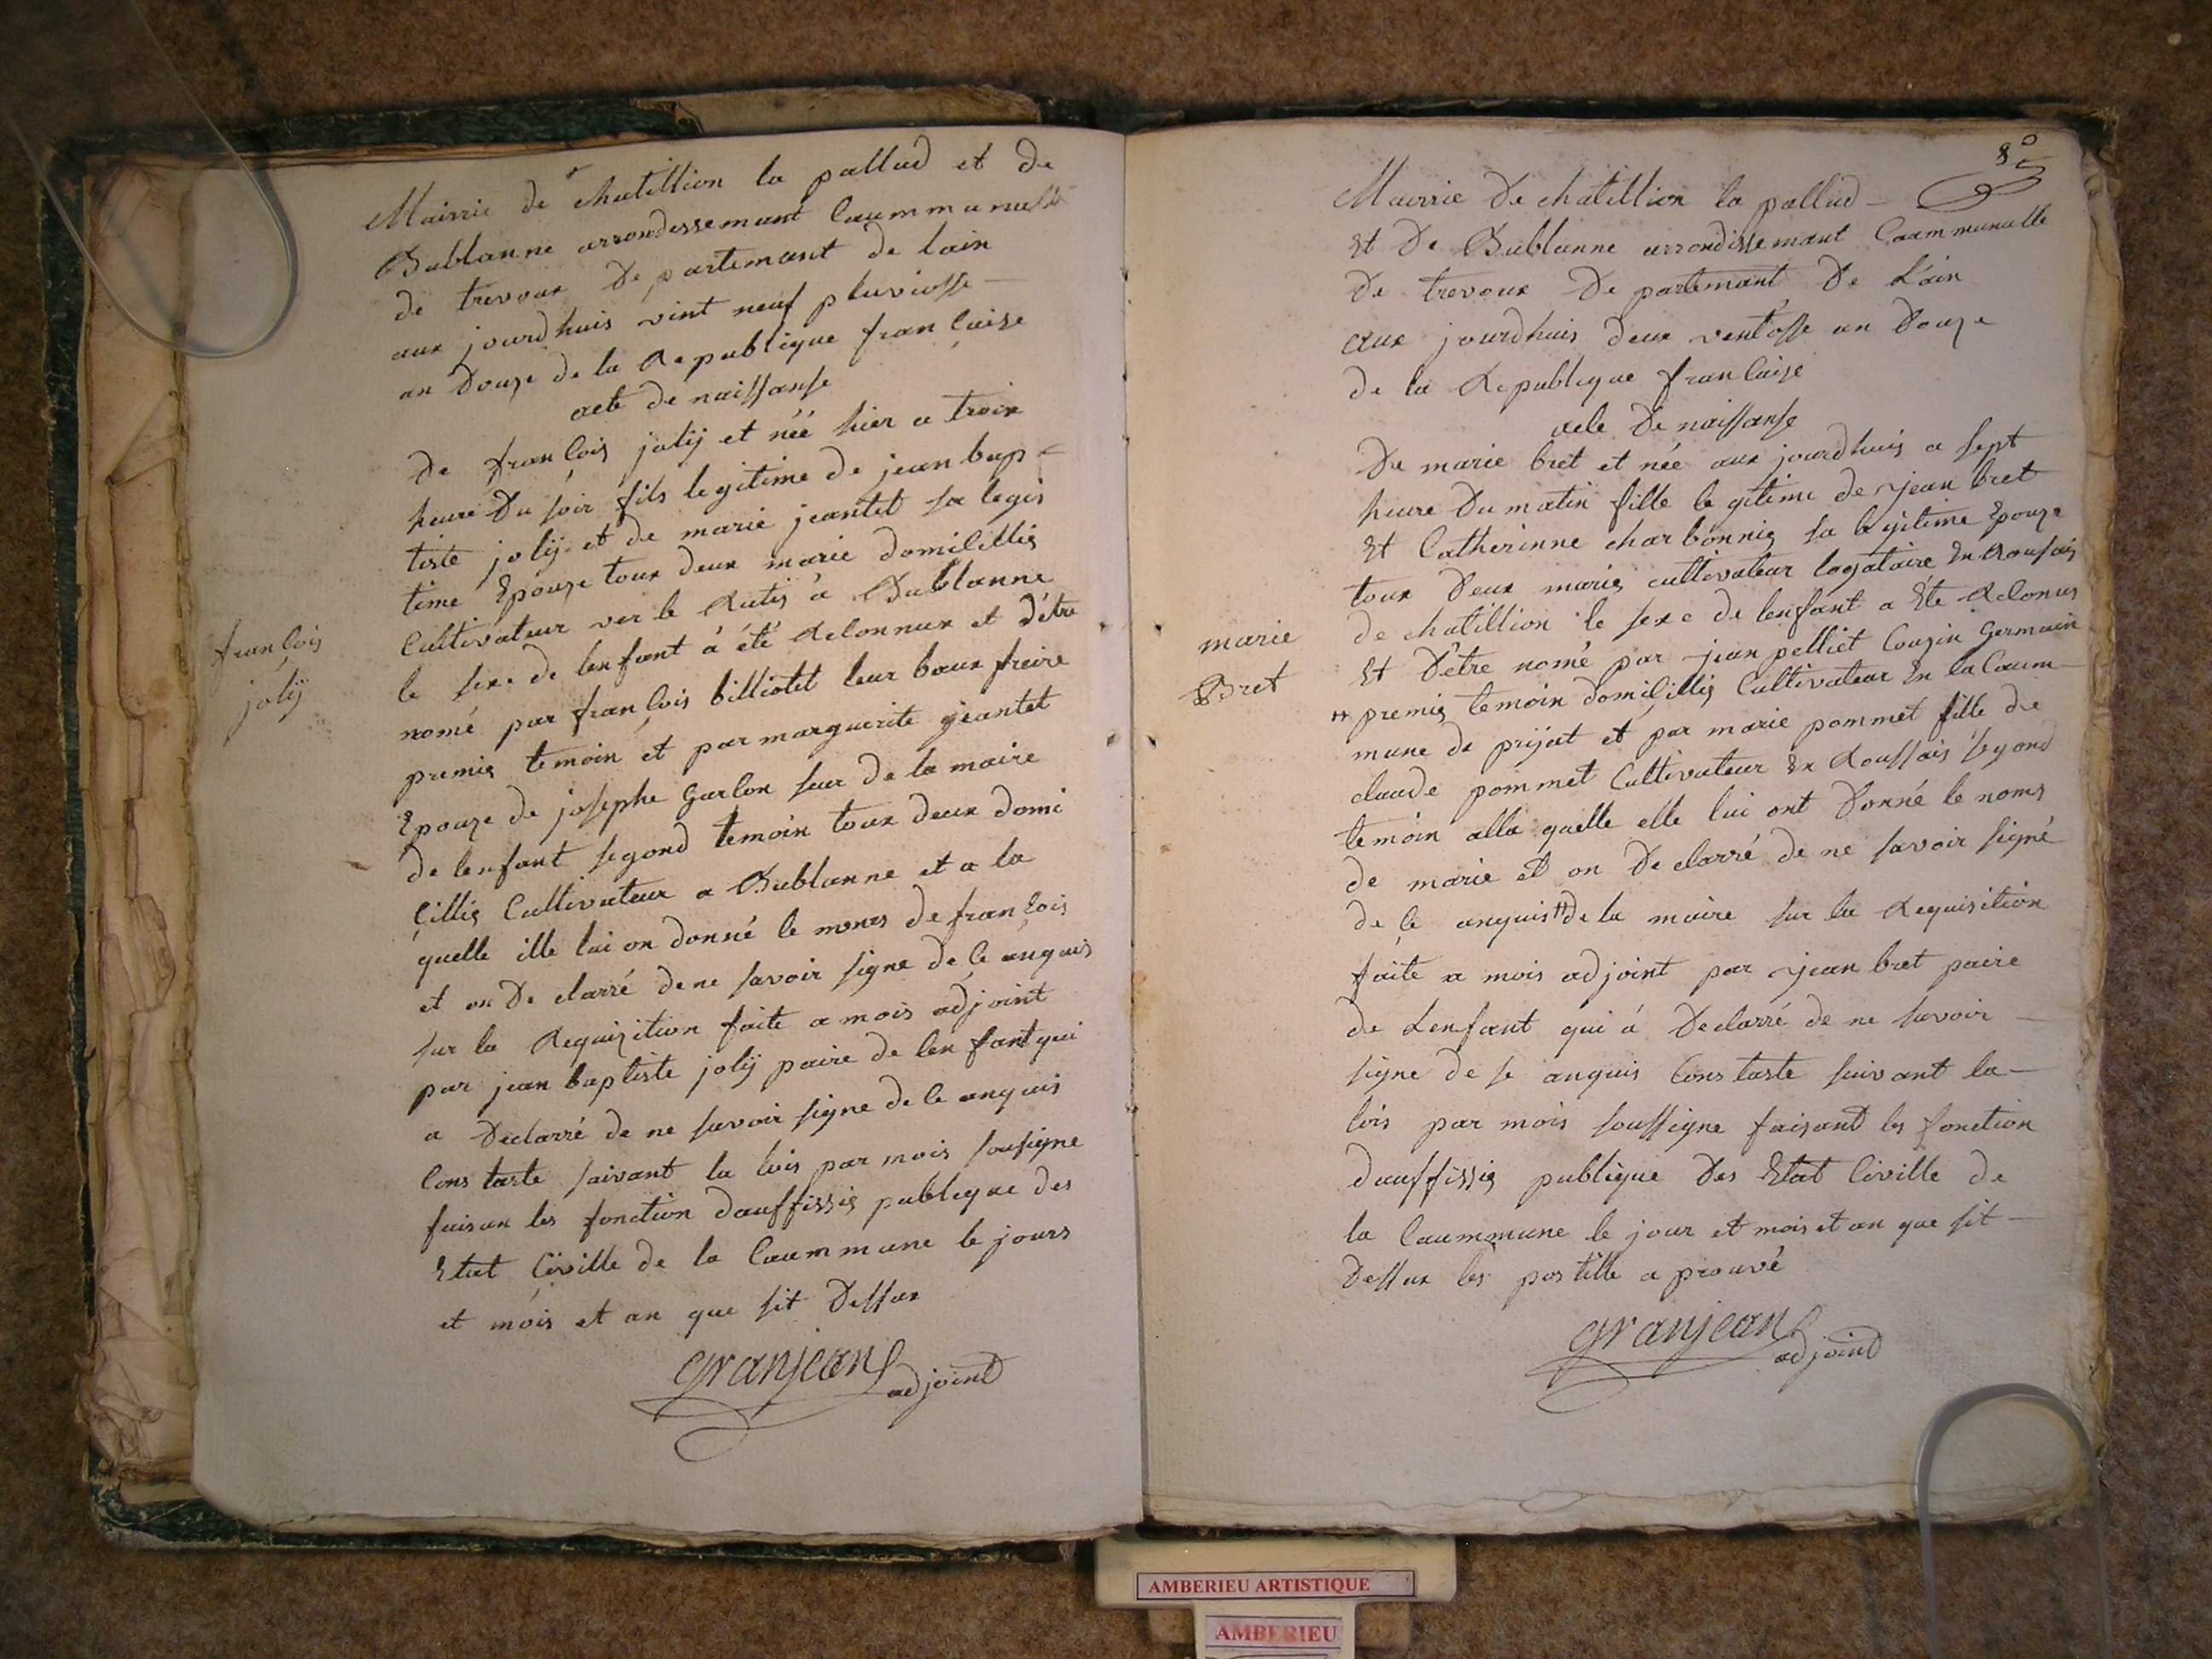 Mairrie de chatillion la pallud et de
Bublanne arrondissemant Caummunalle
de trevoux De partemant de lain
aux jourdhuis vint neuf pluviosse
an Douze de la Republique francaise
acte de naissanse
De francois jolij et néé hier a troix
heure Du soir fils legitime de jean bap=
tiste jolij et de marie jeantet sa legis
time Epouze toux deux marie domicillis
Cultivateur ver le Rutis a Bublanne
le sexe de lenfant a été Reconnux et d'étre
nomé par francois billiotet leur baux freire
premis temoin et par marguerite jeantet
Epouze de josephe Garlon sur de la maire
de lenfant segond temoin toux deux domi
cillis Cultivateur a Bublanne et a la
quelle ille lui on donné le nomes de francois
et on De clarré de ne savoir signe de ce anquis
sur la Requizition faite a mois adjoint
par jean baptiste jolij paire de len fant qui
a Declarré de ne savoir signe de ce anquis
Constaste suivant la lois par mois sousigne
faisan les fonction dauffissis publique des
Etat Civille de la Caummune le jours
et mois et an que sit Dessux
granjean adjoint
francois
jolij
8
Mairrie De chatillion la pallud
Et De Bublanne arrondissemant Caummunalle
De trevoux De partemant De L'ain
aux jourdhuis deux ventosse an Douze
de la Republique francaise
acte De naissanse
De marie bret et née aux jourdhuis a sept
heure Du matin fille legitime de jean bret
Et Catherinne charbonnis sa legitime Epouze
toux Deux maris cultivateur logataire En Rousais
de chatillion le sexe de lenfant a Été Reconus
Et D'étre nomé par jean pelliet Cougin Germain
premis temoin domicillis Cultivateur En la Caum
mune de prijat et par marie pommet fille de
claude pommet Cultivateur En Roussais segond
temoin alla quelle elle lui ont Donné le noms
de marie et on De clarré de ne savoir signé
de ce anquis de la maire sur la Requisition
faite a mois adjoint par jean bret paire
de Lenfant qui á Declarré de ne savoir
signe de se anquis Constaste suivant la
lois par mois soussigne faisant les fonction
dauffissis publique Des Etat Civille de
la Caummune le jour et mois et an que sit
Dessux les postille a prouvé
granjean adjoint
marie
Bret
AMBERIEU ARTISTIQUE
AMBERIEU